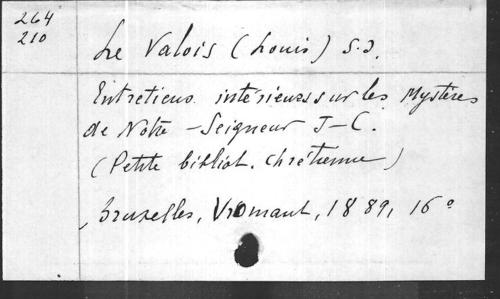 264
210
Le Valois (Louis) S.J.
Entretiens intérieurs sur les Mystères
de Notre-Seigneur J-C.
(Petite bibliot. chrétienne)
Bruxelles, Vromant, 1889, 16°